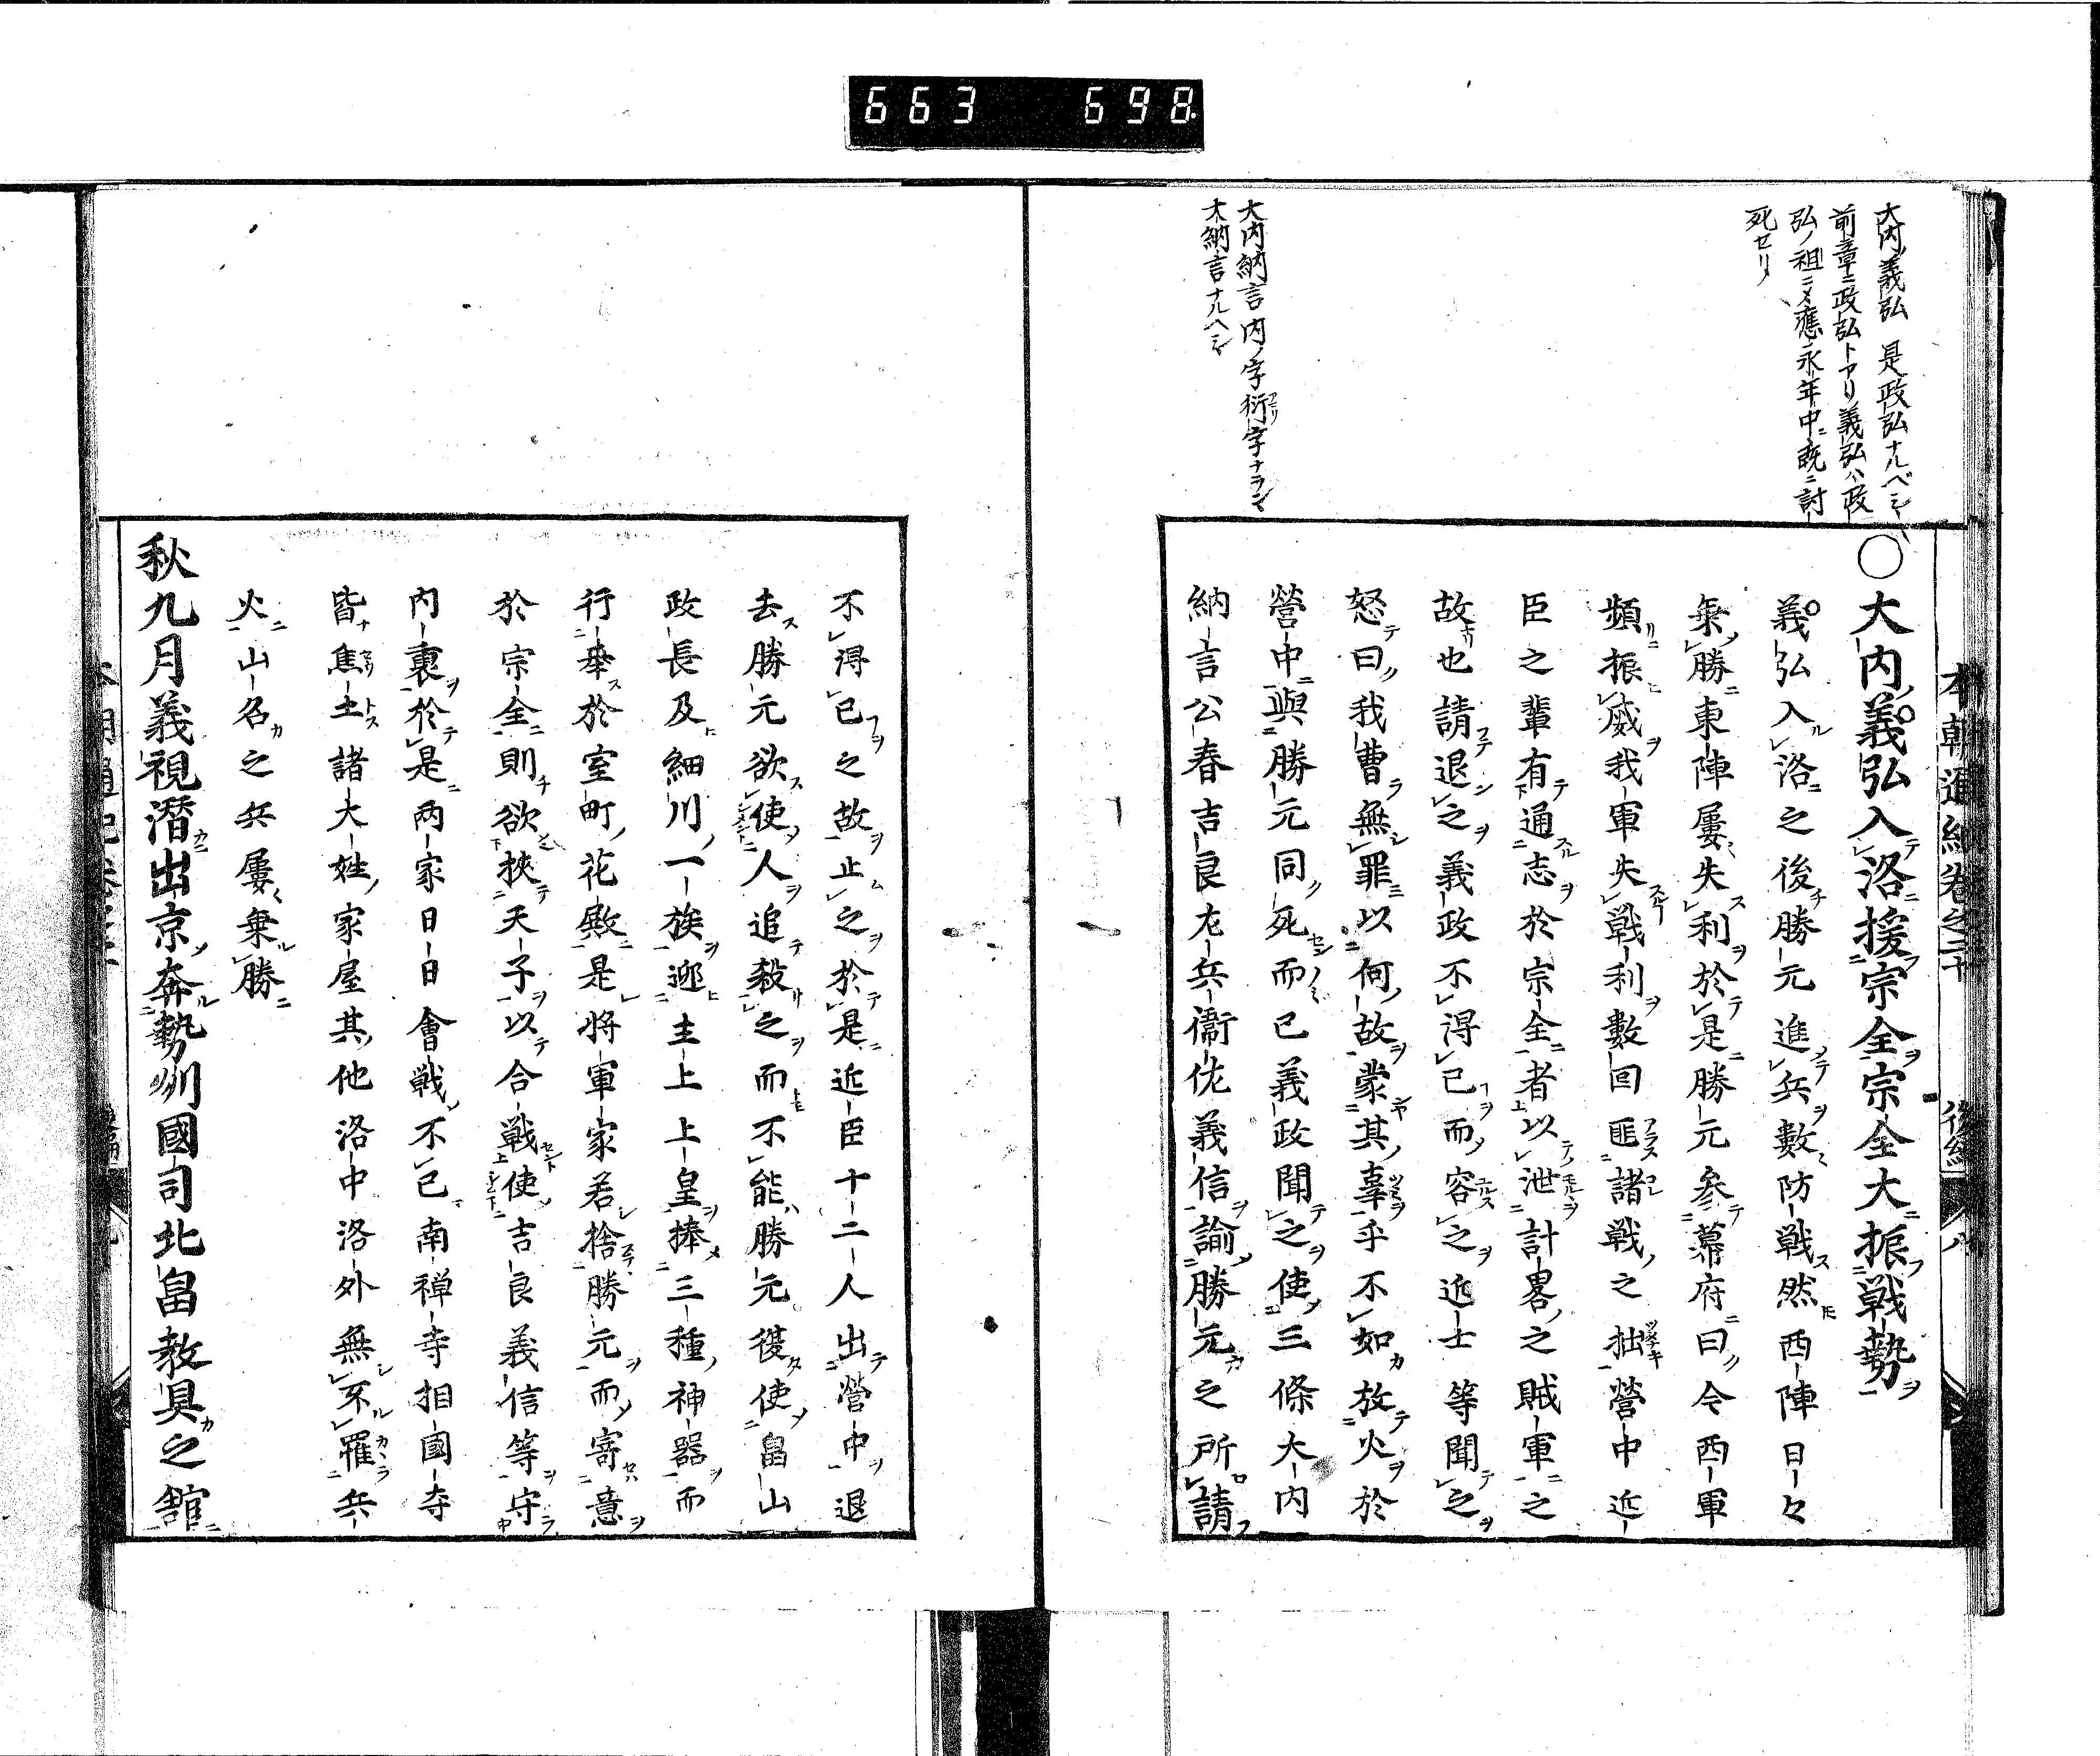 663 698
大内義弘 是政弘ナルベシ
前章ニ政弘トアリ義弘ハ政
弘ノ祖ニメ應永年中ニ既ニ討
死セリ
大内納言内ノ字衍字ナラン
大納言ナルヘシ
本朝通紀卷之二十 後編 八
〇大内義弘入洛援宗全宗全大振戦勢
義弘入洛之後勝元進兵數防戦然西陣日々
乗勝東陣屢失利於是勝元参幕府曰今西軍
頻振威我軍失戦利數回匪諸戦之拙營中近
臣之輩有通志於宗全者以泄計畧之賊軍之
故也請退之義政不得已而容之近士等聞之
怒曰我曹無罪以何故蒙其辜乎不如放火於
營中與勝元同死而已義政聞之使三條大内
納言公春吉良左兵衞佐義信諭勝元之所請
不得已之故止之於是近臣十二人出營中退
去勝元欲使人追殺之而不能勝元復使畠山
政長及細川一族迎主上上皇捧三種神器而
行幸於室町花殿是將軍家若捨勝元而寄意
於宗全則欲挾天子以合戦使吉良義信等守
内裏於是両家日日會戦不已南禅寺相國寺
皆焦土諸大姓家屋其他洛中洛外無不罹兵
火山名之兵屢乗勝
秋九月義視潛出京奔勢州國司北畠教具之館